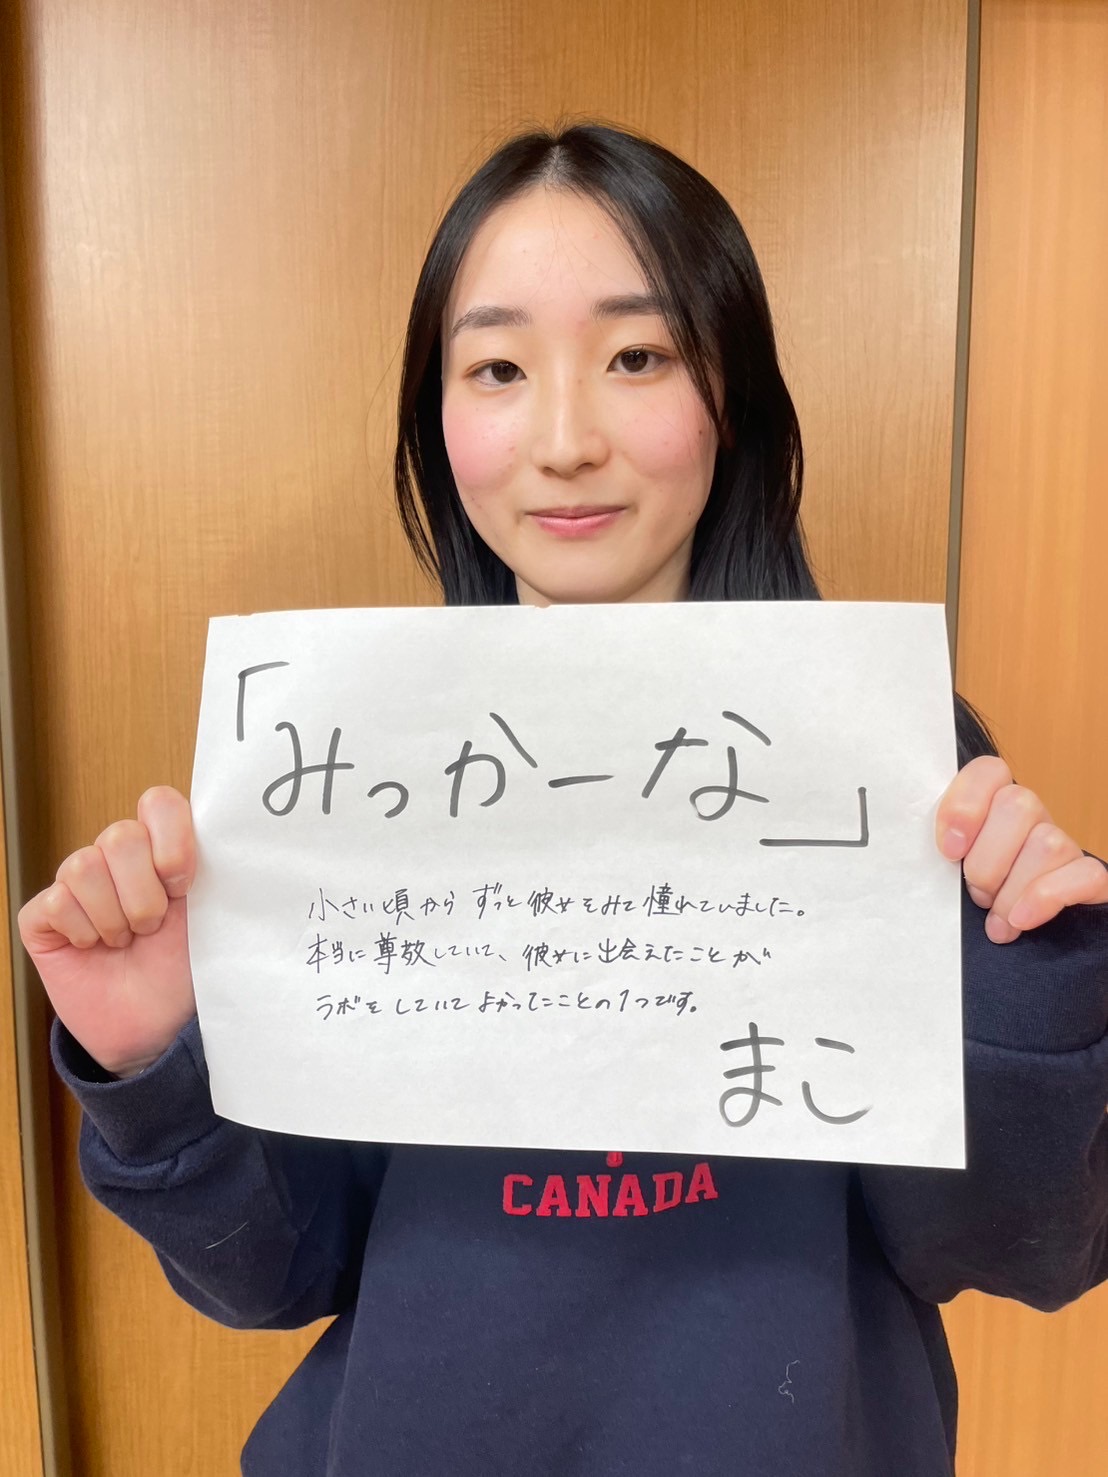 「みっかーな」
小さい頃からずっと彼女をみて憧れていました。
本当に尊敬していて、彼女に出会えたことが
ラボをしていてよかったことの1つです。
まこ
CANADA